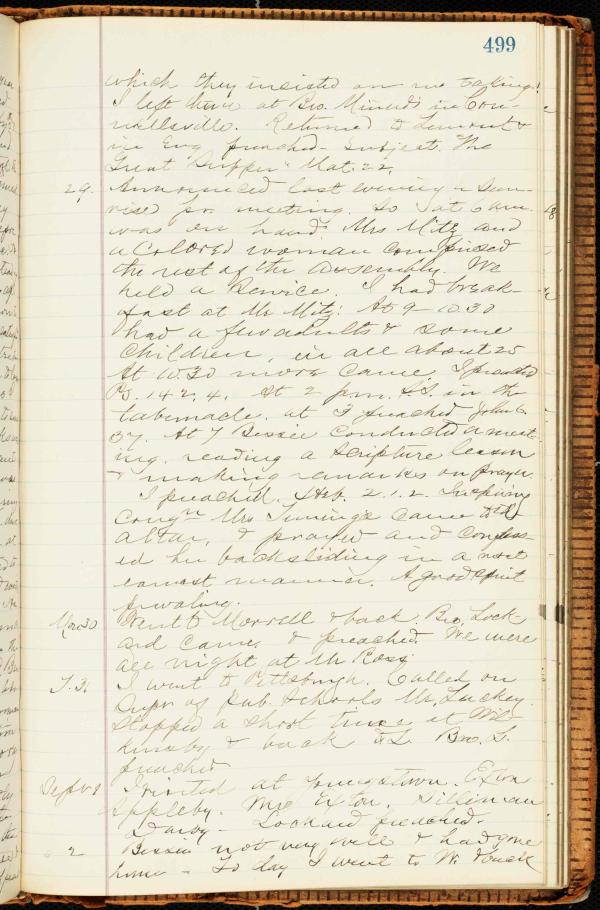 499
which they insisted on me taking.
I left there at Bro. Minerds in Con-
nellsville. Returned to Lemont &
in Evg preached - subject. The
Great "Supper" Mat. 22.
29. Announced last evening a Sun-
rise pr. meeting. So I at 6 am
was on hand. Mrs Mitz and
a Colored woman comprised
the rest of the assembly. We
held a Service. I had break-
fast at Mr Mitz. At 9 - 10.30
had a few adults & some
children, in all about 25
At 10.30 more came. I preached
Ps. 142.4. At 2 p.m. S.S. in the
tabernacle. at 3 preached John 6
37. At 7 Bessie conducted a meet-
ing, reading a Scripture lesson
& making remarks on prayer.
I preached. Heb. 2.1.2. Inspiring
congn Mrs came to the
altar, & prayed and confess-
ed her backsliding in a most
earnest manner. A good spirit
prevailing.
Mon 30 Went to Morrell & back. Bro. Lock-
ard came, & preached. We were
all night at Mr Ross.
T. 31 I went to Pittsburgh. Called on
Supr of Pub. Schools Mr. Luckey.
Stopped a short time at Wil-
kinsby & back to L. Bro. L.
preached
Sept 1 I visited at Youngstown.
Appleby. Mrs Silliman
Darby - Lockard preached.
2 Bessie not very well & had gone
home - To day I went to W.